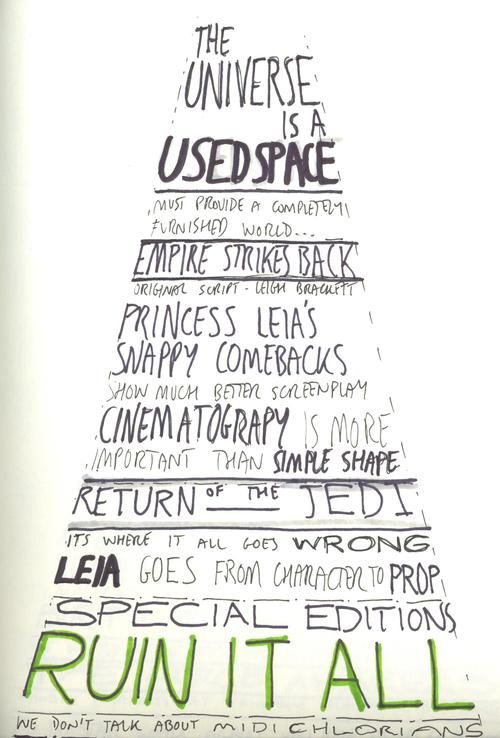 THE
UNIVERSE
IS A
USED SPACE
MUST PROVIDE A COMPLETELY
FURNISHED WORLD...
EMPIRE STRIKES BACK
ORIGINAL SCRIPT - LEIGH BRACKETT
PRINCESS LEIA'S
SNAPPY COMEBACKS
SHOW MUCH BETTER SCREENPLAY
CINEMATOGRAPY IS MORE
IMPORTANT THAN SIMPLE SHAPE
RETURN OF THE JEDI
ITS WHERE IT ALL GOES WRONG
LEIA GOES FROM CHARACTER TO PROP
SPECIAL EDITIONS
RUIN IT ALL
WE DON'T TALK ABOUT MIDICHLORIANS